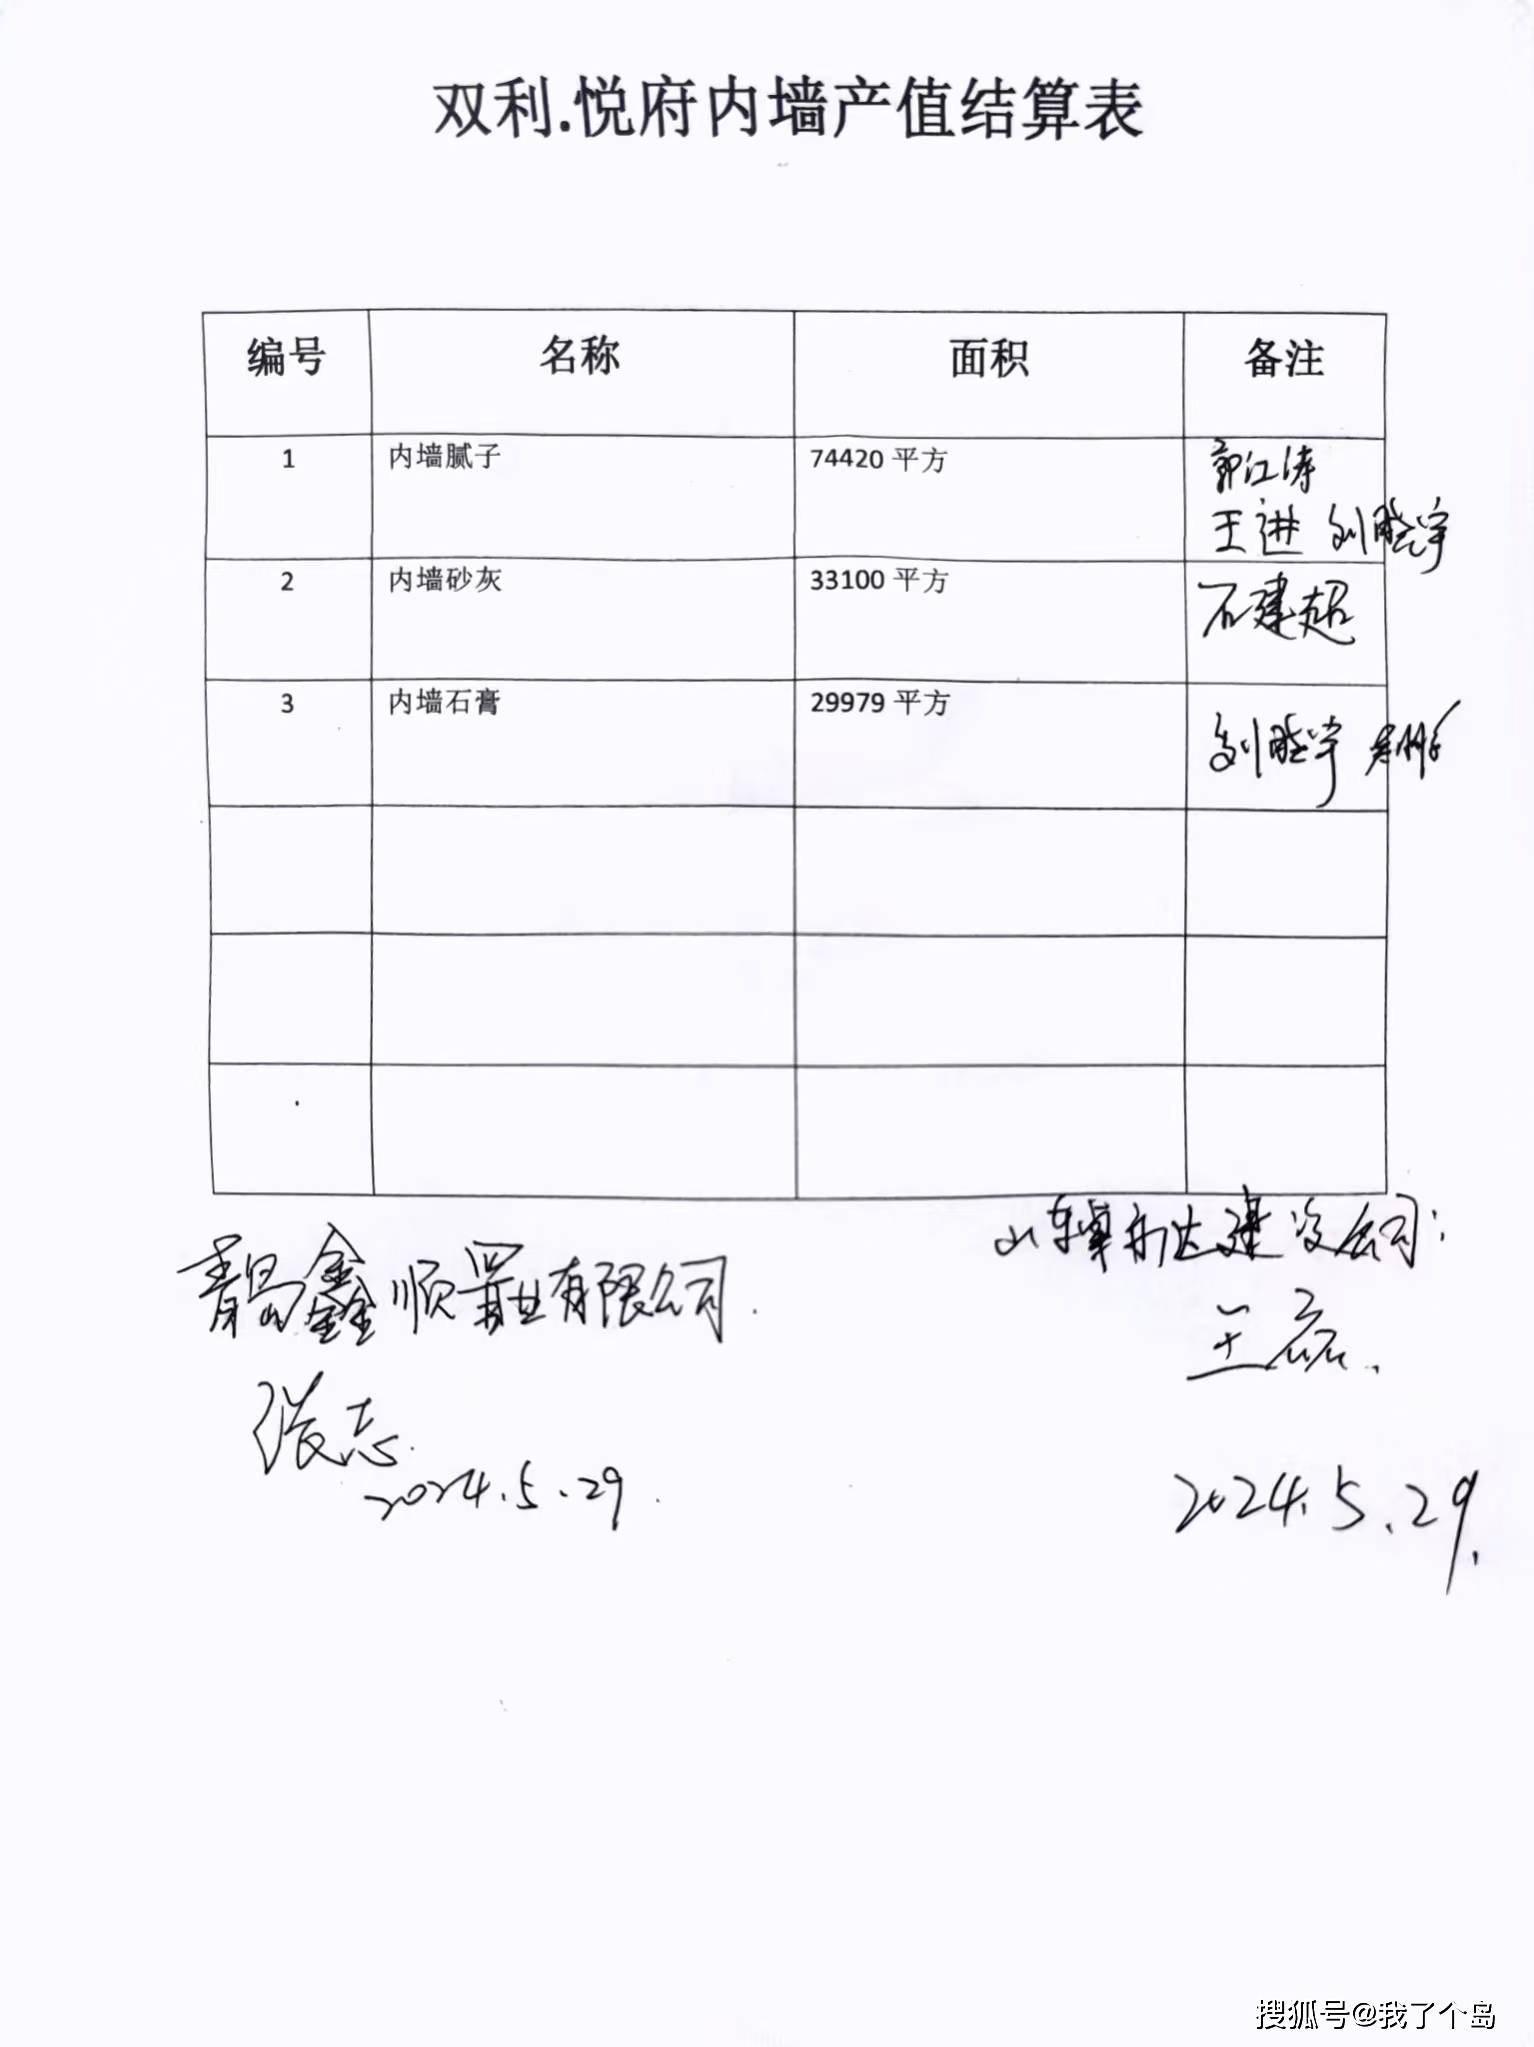 双利.悦府内墙产值结算表
编号 名称 面积 备注
1 内墙腻子 74420 平方 郭江涛
王进 刘晓宇
2 内墙砂灰 33100 平方 石建超
3 内墙石膏 29979 平方 刘晓宇
山东 建设公司:
青岛鑫顺置业有限公司.
王磊.
张志.
2024.5.29.
2024.5.29.
搜狐号@我了个岛